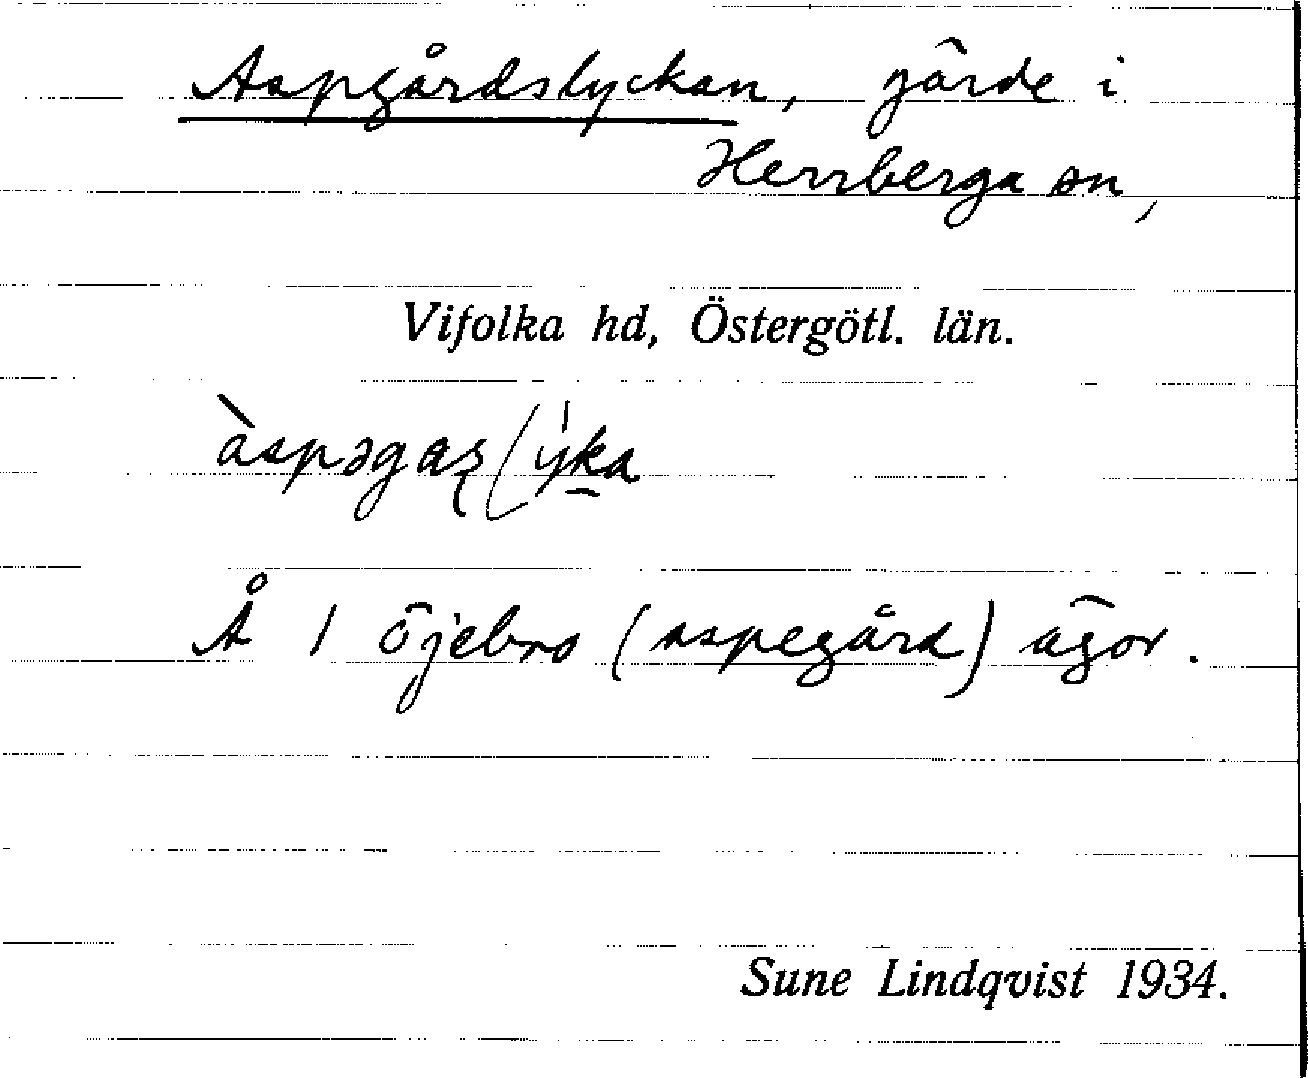 Aspgårdslyckan, gärde i
Herrberga sn,
Vifolka hd, Östergötl. län.
Å 1 Öjebro (aspegård) ägor.
Sune Lindqvist 1934.